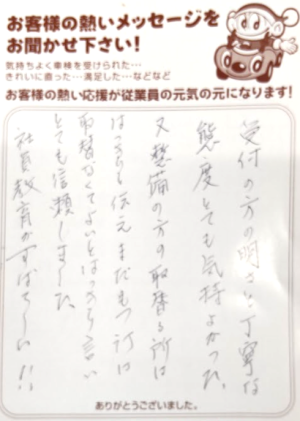 お客様の熱いメッセージを
お聞かせ下さい！
気持ちよく車検を受けられた…
きれいに直った…満足した…などなど
お客様の熱い応援が従業員の元気の元になります！
受付の方の明さと丁寧な
態度とても気持よかった。
又整備の方の取替る所は
はっきり伝えまだもつ所は
取替なくてよいとはっきり言い
とても信頼しました。
社員教育がすばらしい!!
ありがとうございました。